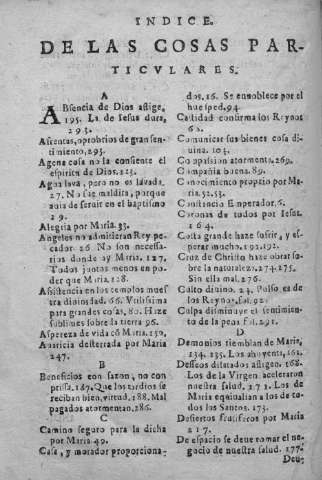 INDICE.
DE LAS COSAS PAR-
TICVLARES.
A
ABsencia de Dios aflige.
195. La de Iesus dura,
293.
Afrentas, oprobrios de gran sen-
timiento, 293.
Agena cosa no la consiente el
espiritu de Dios. 123.
Agua lava, pero no es lavada.
27. No fue maldita, porque
auia de seruir en el baptismo
29.
Alegria por Maria. 33.
Angeles no admitieran Rey pe-
cador. 26. No son necessa-
rios donde ay Maria. 127.
Todos juntos menos en po-
der que Maria. 128.
Assistencia en los templos mues-
tra diuinidad. 66. Vtilissima
para grandes cosas, 80. Haze
sublimes sobre la tierra 96.
Aspereza de vida cõ Maria. 150.
Auaricia desterrada por Maria
247.
B
Beneficios con sazon, no con
prissa. 187. Que los tardios se
reciban bien, virtud. 188. Mal
pagados atormentan. 286.
C
Camino seguro para la dicha
por Maria 49.
Casa, y morador proporciona-
dos. 16. Se ennoblece por el
huesped. 94.
Castidad confirma los Reynos
62.
Comunicar sus bienes cosa di-
uina. 103.
Compassion atormenta. 269.
Compañia buena. 89.
Conocimiento propio por Ma-
ria. 52. 53.
Constancia Emperador. 6.
Coronas de todos por Iesus.
164.
Costa grande haze sufrir, y es-
perar mucho. 192. 192.
Cruz de Christo haze obrar so-
bre la naturaleza. 274. 275.
Sin ella mal. 276.
Culto diuino. 24. Pulso es de
los Reynos, sal. 92.
Culpa disminuye el sentimien-
to de la pena Fil. 291.
D
Demonios tiemblan de Maria,
134. 235. Los ahuyenta, 162.
Desseos dilatados afligen. 168.
Los de la Virgen aceleraron
nuestra salud. 171. Los de
Maria equiualian a los de to-
dos los Santos. 173.
Desiertos fructiferos por Maria
217.
De espacio se deue tomar el ne-
gocio de nuestra salud. 177.
Deu-